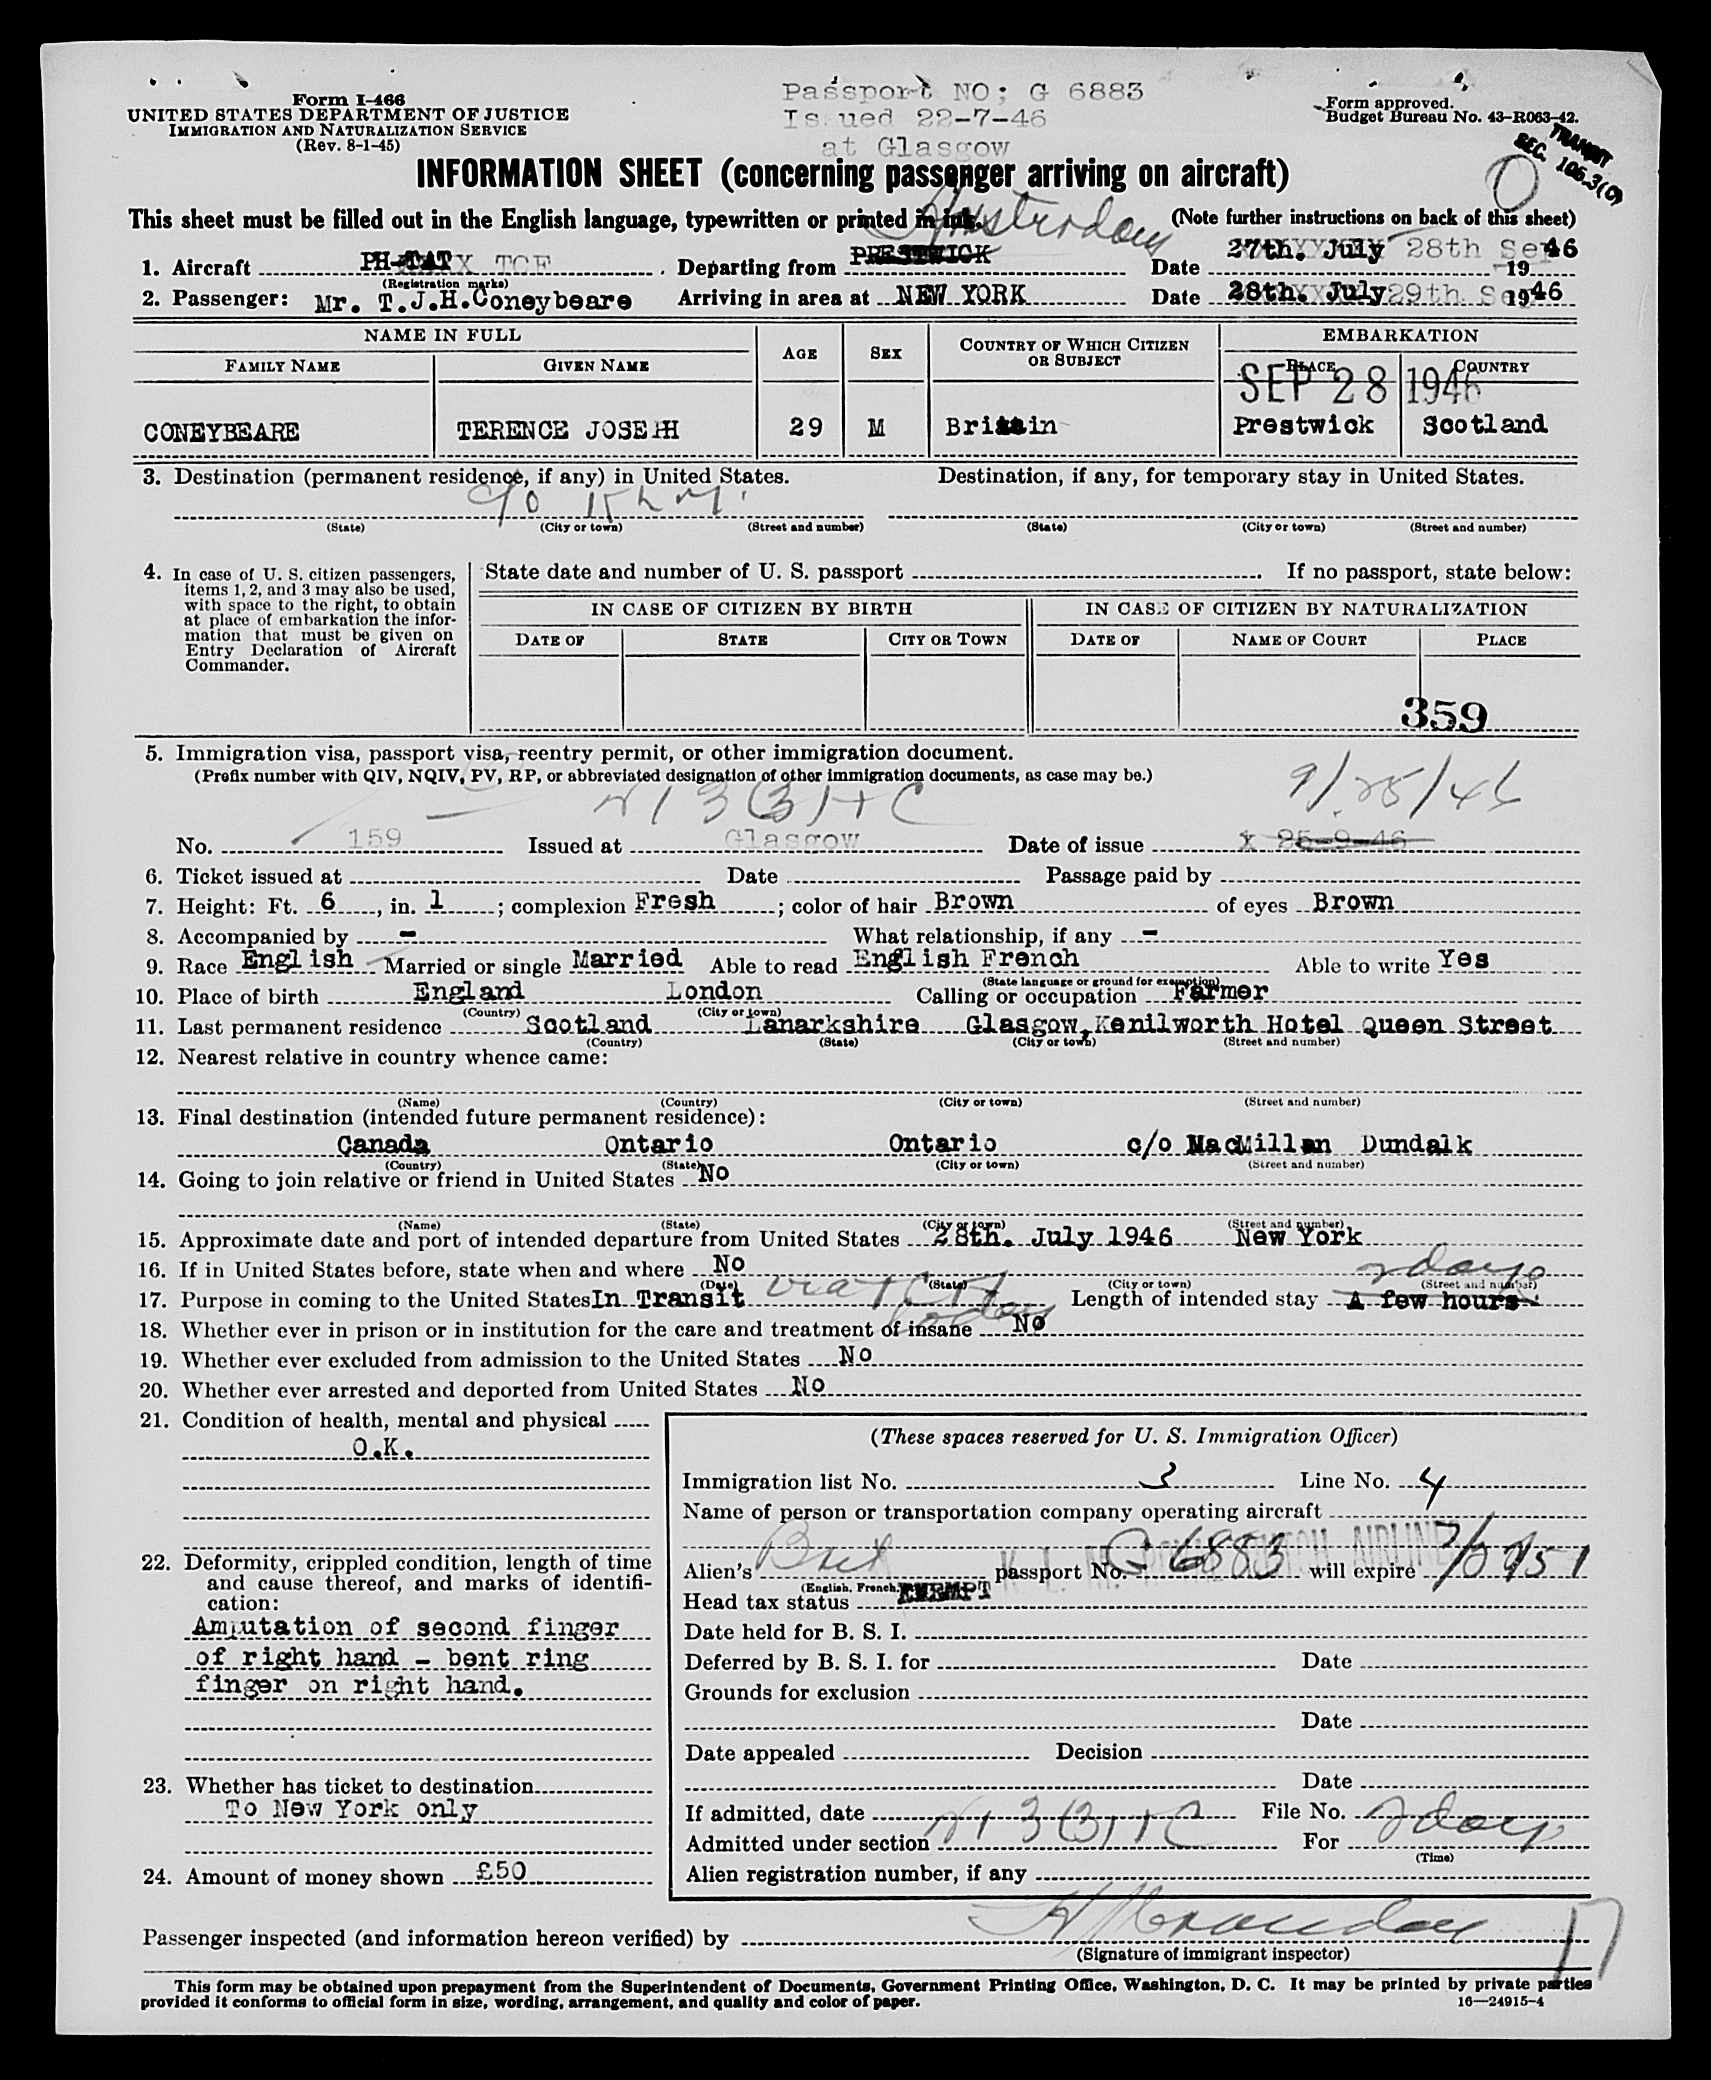 Form I-466
UNITED STATES DEPARTMENT OF JUSTICE
IMMIGRATION AND NATURALIZATION SERVICE
(Rev. 8-1-45)
Passport NO; G 6883
Is ued 22-7-46
at Glasgow
Form approved.
Budget Bureau No. 43-R063-42.
TRANSIT
SEC. 106.3(C)
INFORMATION SHEET (concerning passenger arriving on aircraft)
This sheet must be filled out in the English language, typewritten or printed in ink.
(Note further instructions on back of this sheet)
Amsterdam
1. Aircraft PH-TAT TCF Departing from PRESTWICK Date 27th. July 28th Sep 1946
(Registration marks)
2. Passenger: Mr. T.J.H.Coneybeare Arriving in area at NEW YORK Date 28th. July 29th Sep 1946
NAME IN FULL AGE SEX COUNTRY OF WHICH CITIZEN OR SUBJECT EMBARKATION
FAMILY NAME GIVEN NAME PLACE COUNTRY
SEP 28 1946
CONEYBEARE TERENCE JOSEPH 29 M Britain Prestwick Scotland
3. Destination (permanent residence, if any) in United States. Destination, if any, for temporary stay in United States.
c/o KLM
(State) (City or town) (Street and number) (State) (City or town) (Street and number)
4. In case of U. S. citizen passengers, items 1, 2, and 3 may also be used, with space to the right, to obtain at place of embarkation the information that must be given on Entry Declaration of Aircraft Commander.
State date and number of U. S. passport If no passport, state below:
IN CASE OF CITIZEN BY BIRTH IN CASE OF CITIZEN BY NATURALIZATION
DATE OF STATE CITY OR TOWN DATE OF NAME OF COURT PLACE
359
5. Immigration visa, passport visa, reentry permit, or other immigration document.
(Prefix number with QIV, NQIV, PV, RP, or abbreviated designation of other immigration documents, as case may be.)
3(3)+C 9/25/46
No. 159 Issued at Glasgow Date of issue X 25-9-46
6. Ticket issued at Date Passage paid by
7. Height: Ft. 6, in. 1; complexion Fresh; color of hair Brown of eyes Brown
8. Accompanied by - What relationship, if any -
9. Race English Married or single Married Able to read English French Able to write Yes
(State language or ground for exemption)
10. Place of birth England London Calling or occupation Farmer
(Country) (City or town)
11. Last permanent residence Scotland Lanarkshire Glasgow, Kenilworth Hotel Queen Street
(Country) (State) (City or town) (Street and number)
12. Nearest relative in country whence came:
(Name) (Country) (City or town) (Street and number)
13. Final destination (intended future permanent residence):
Canada Ontario Ontario c/o MacMillan Dundalk
(Country) (State) (City or town) (Street and number)
14. Going to join relative or friend in United States No
(Name) (State) (City or town) (Street and number)
15. Approximate date and port of intended departure from United States 28th. July 1946 New York
16. If in United States before, state when and where No
(Date) (State) (City or town) (Street and number)
2 days
17. Purpose in coming to the United States In Transit via Length of intended stay A few hours
18. Whether ever in prison or in institution for the care and treatment of insane No
19. Whether ever excluded from admission to the United States No
20. Whether ever arrested and deported from United States No
21. Condition of health, mental and physical
O.K.
22. Deformity, crippled condition, length of time and cause thereof, and marks of identification:
Amputation of second finger
of right hand - bent ring
finger on right hand.
23. Whether has ticket to destination
To New York only
24. Amount of money shown £50
(These spaces reserved for U. S. Immigration Officer)
Immigration list No. 3 Line No. 4
Name of person or transportation company operating aircraft
K. L. M. ROYAL DUTCH AIRLINES
Alien's Brit passport No. G 6883 will expire
(English, French,
Head tax status EXEMPT
Date held for B. S. I.
Deferred by B. S. I. for Date
Grounds for exclusion
Date
Date appealed Decision
Date
If admitted, date File No.
Admitted under section 3(3)+C For 2 days
(Time)
Alien registration number, if any
Passenger inspected (and information hereon verified) by
(Signature of immigrant inspector)
This form may be obtained upon prepayment from the Superintendent of Documents, Government Printing Office, Washington, D. C. It may be printed by private parties
provided it conforms to official form in size, wording, arrangement, and quality and color of paper.
16—24915-4